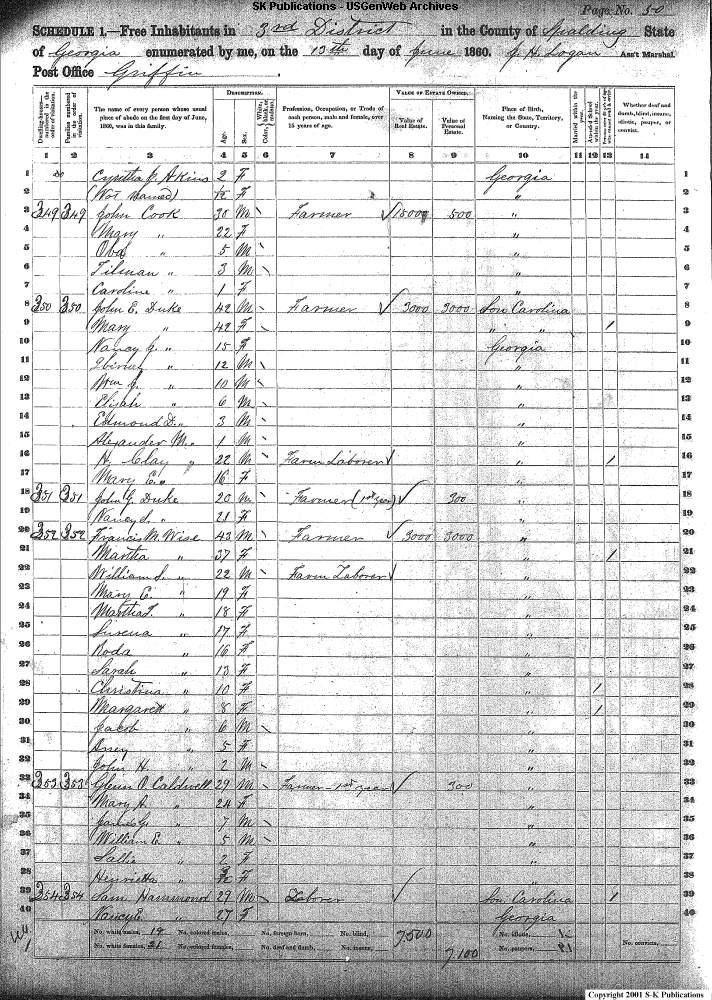 SK Publications - USGenWeb Archives
Page No. 50
SCHEDULE 1.—Free Inhabitants in 3rd District in the County of Spalding State
of Georgia enumerated by me, on the 13th day of June 1860. J. H. Logan Ass't Marshal.
Post Office Griffin
Dwelling-houses— numbered in the order of visitation.
Families numbered in the order of visitation.
The name of every person whose usual place of abode on the first day of June, 1860, was in this family.
DESCRIPTION.
Age.
Sex.
Color, White, black, or mulatto.
Profession, Occupation, or Trade of each person, male and female, over 15 years of age.
VALUE OF ESTATE OWNED.
Value of Real Estate.
Value of Personal Estate.
Place of Birth, Naming the State, Territory, or Country.
Married within the year.
Attended School within the year.
Whether deaf and dumb, blind, insane, idiotic, pauper, or convict.
1 2 3 4 5 6 7 8 9 10 11 12 13 14
1 Akins 2 F Georgia 1
2 (Not Named) F " 2
3 349 349 John Cook 30 M Farmer 500 " 3
4 Mary " 22 F " 4
5 Oba " 5 M " 5
6 Tilman " 3 M " 6
7 Caroline " 1 F " 7
8 350 350 John E. Duke 42 M Farmer 3000 3000 Sou Carolina 8
9 Mary " 42 F " " / 9
10 Nancy J. " 15 F Georgia 10
11 " 12 M " 11
12 Wm J. " 10 M " 12
13 Elijah " 6 M " 13
14 Edmond D. " 3 M " 14
15 Alexander M. " 1 M " 15
16 H. Clay " 22 M Farm Laborer " / 16
17 Mary E. " 16 F " 17
18 351 351 John G. Duke 20 M Farmer (1st year) 300 " 18
19 Nancy " 21 F " 19
20 352 352 Francis M. Wise 43 M Farmer 3000 3000 " 20
21 Martha " 37 F " / 21
22 William " 22 M Farm Laborer " 22
23 Mary E. " 19 F " 23
24 Martha " 18 F " 24
25 " 17 F " 25
26 Roda " 16 F " 26
27 Sarah " 13 F " 27
28 Christina " 10 F " / 28
29 Margarett " 8 F " / 29
30 Jacob " 6 M " 30
31 " 5 F " 31
32 John H. " 2 M " 32
33 353 353 Glenn O. Caldwell 29 M Farmer 1st year 300 " 33
34 Mary A. " 24 F " 34
35 James G. " 7 M " 35
36 William E. " 5 M " 36
37 Sallie " 2 F " 37
38 Henrietta " F " 38
39 354 354 Sam Hammond 29 M Laborer Sou. Carolina / 39
40 Nancy E. " 27 F Georgia 40
No. white males, 19 No. colored males, No. foreign born, No. blind, 7500 No. idiotic,
No. white females, 21 No. colored females, No. deaf and dumb, No. insane, 7100 No. paupers, No. convicts,
Copyright 2001 S-K Publications